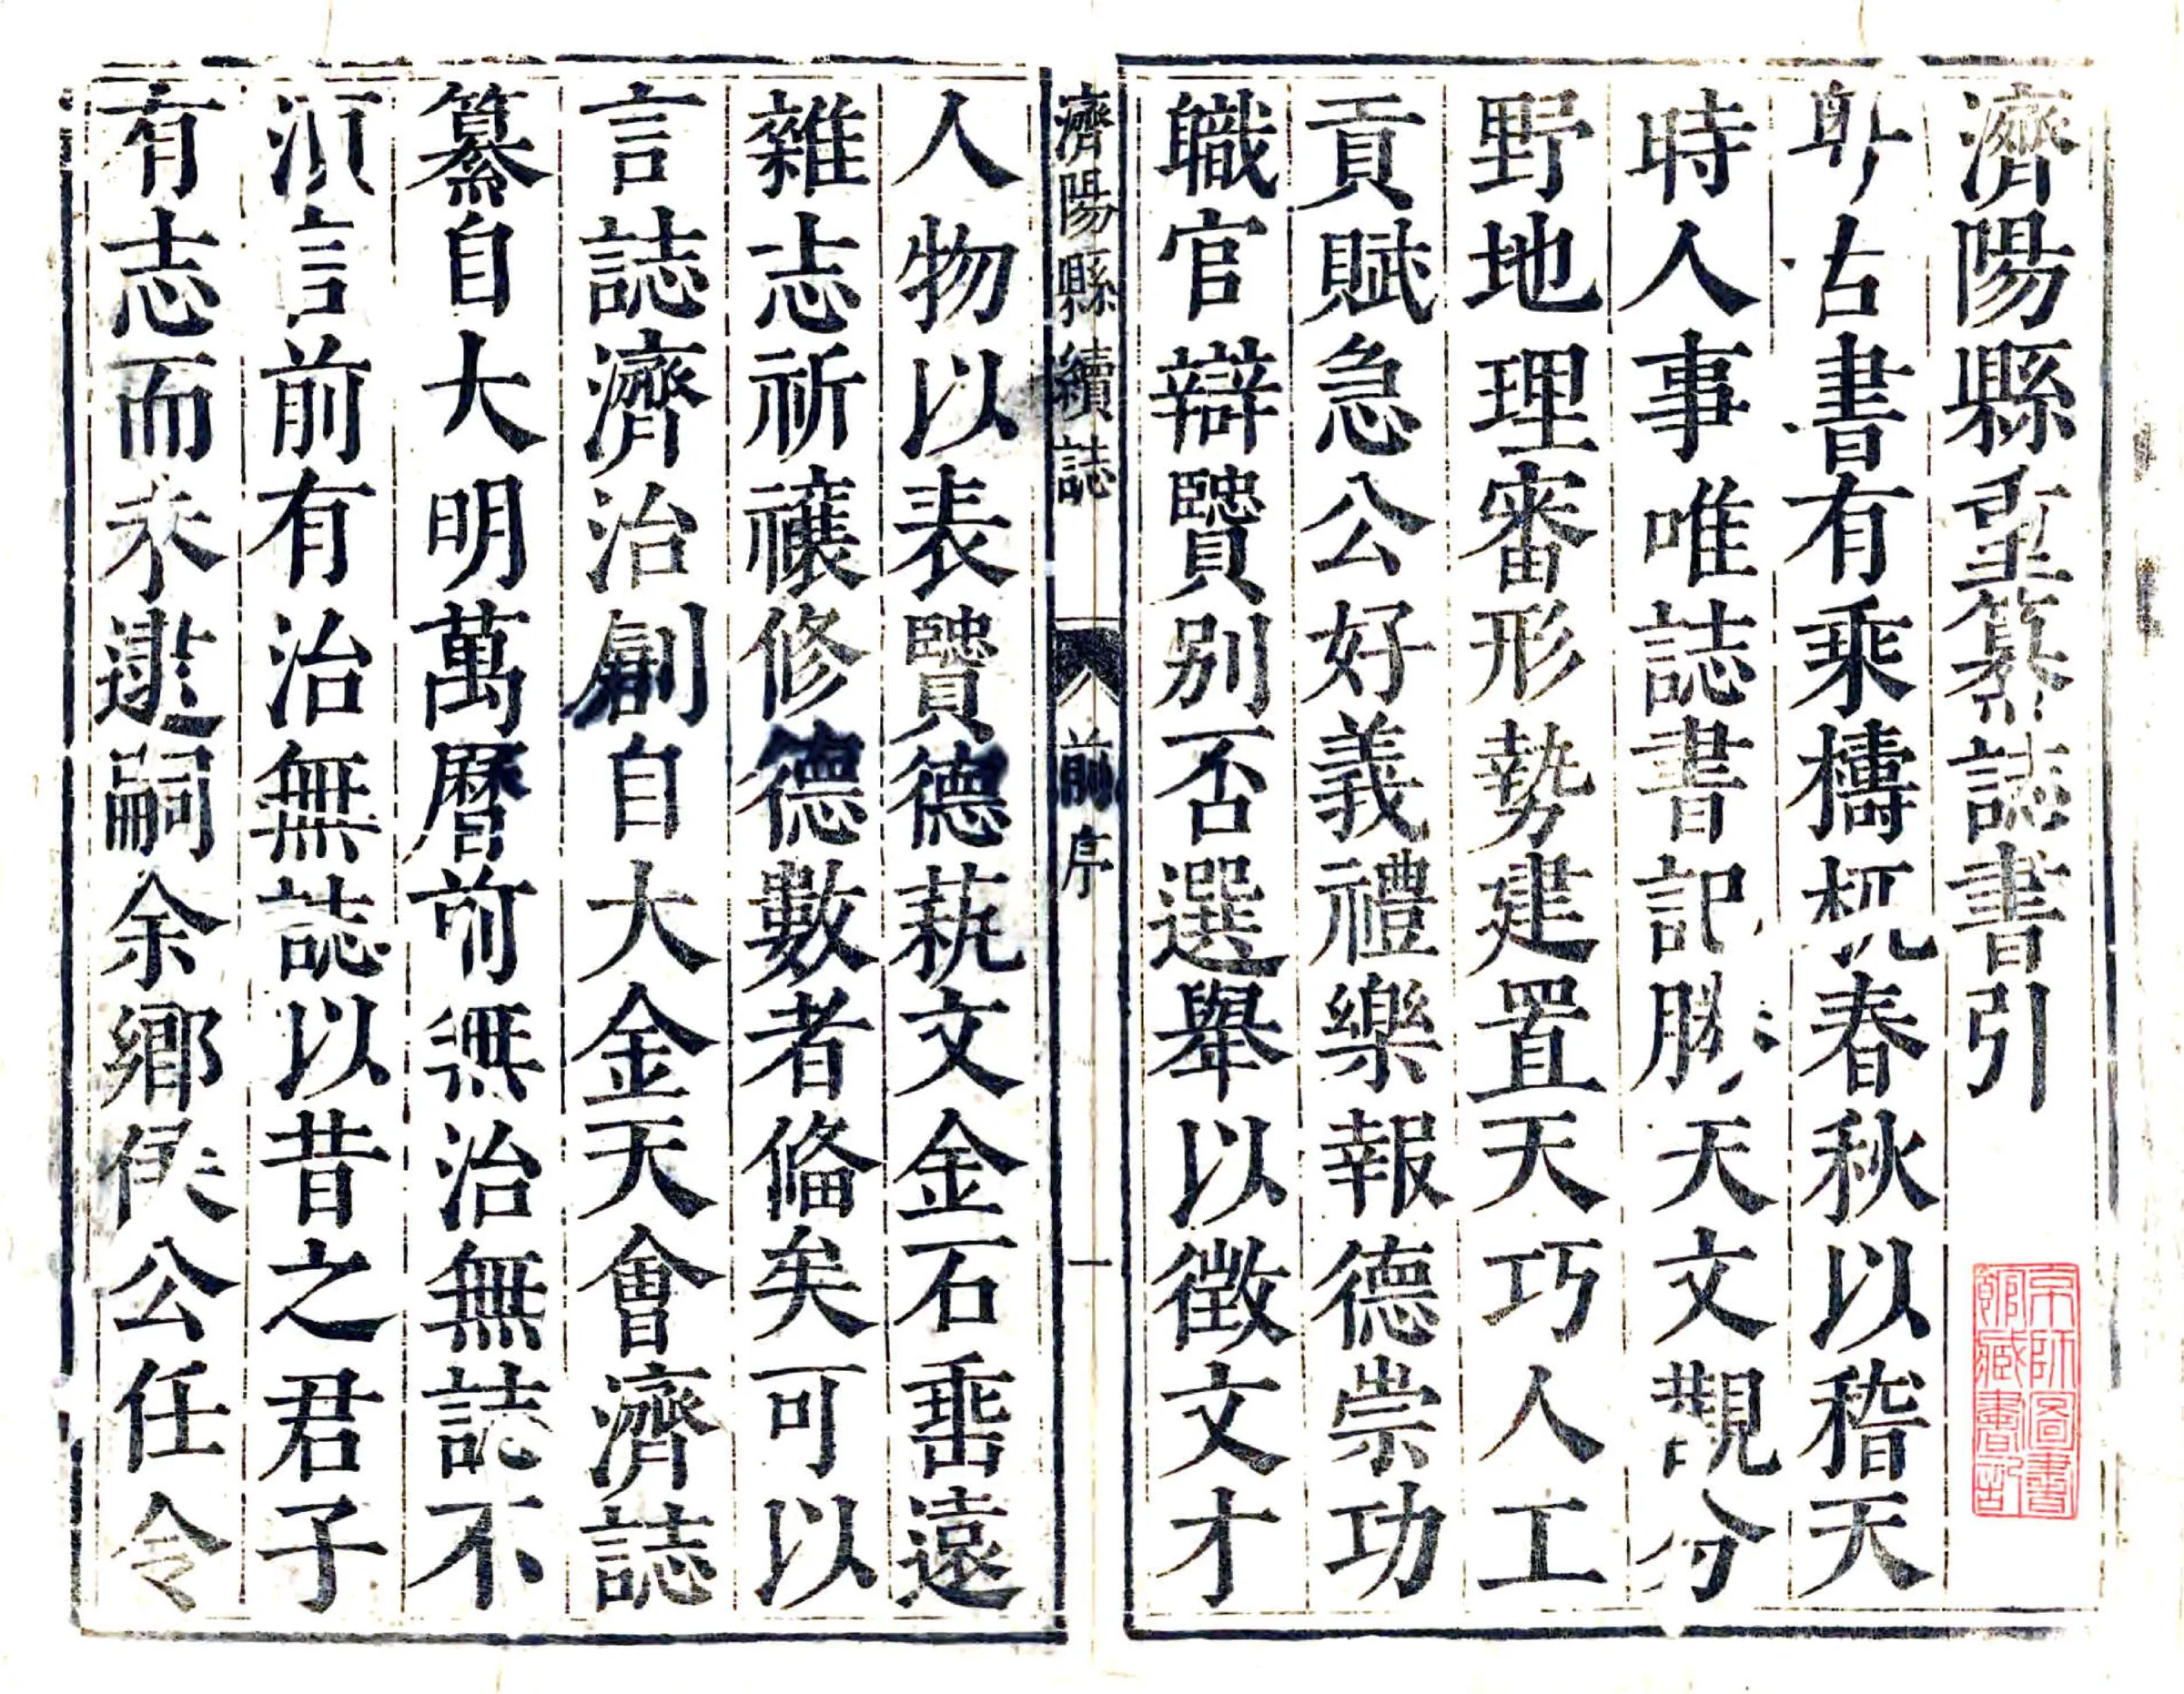 濟陽縣重纂誌書引
古書有乘檮杌春秋以稽天
時人事唯誌書記勝天文觀分
野地理審形勢建置天巧人工
貢賦急公好義禮樂報德崇功
職官辯賢別否選舉以徵文才
濟陽縣續誌
前序
一
人物以表賢德蓺文金石垂遠
雜志祈禳修德數者俻矣可以
言誌濟治創自大金天會濟誌
纂自大明萬曆前無治無誌不
須言前有治無誌以昔之君子
有志而未逮嗣余鄉侯公任令
京師圖書館藏書記